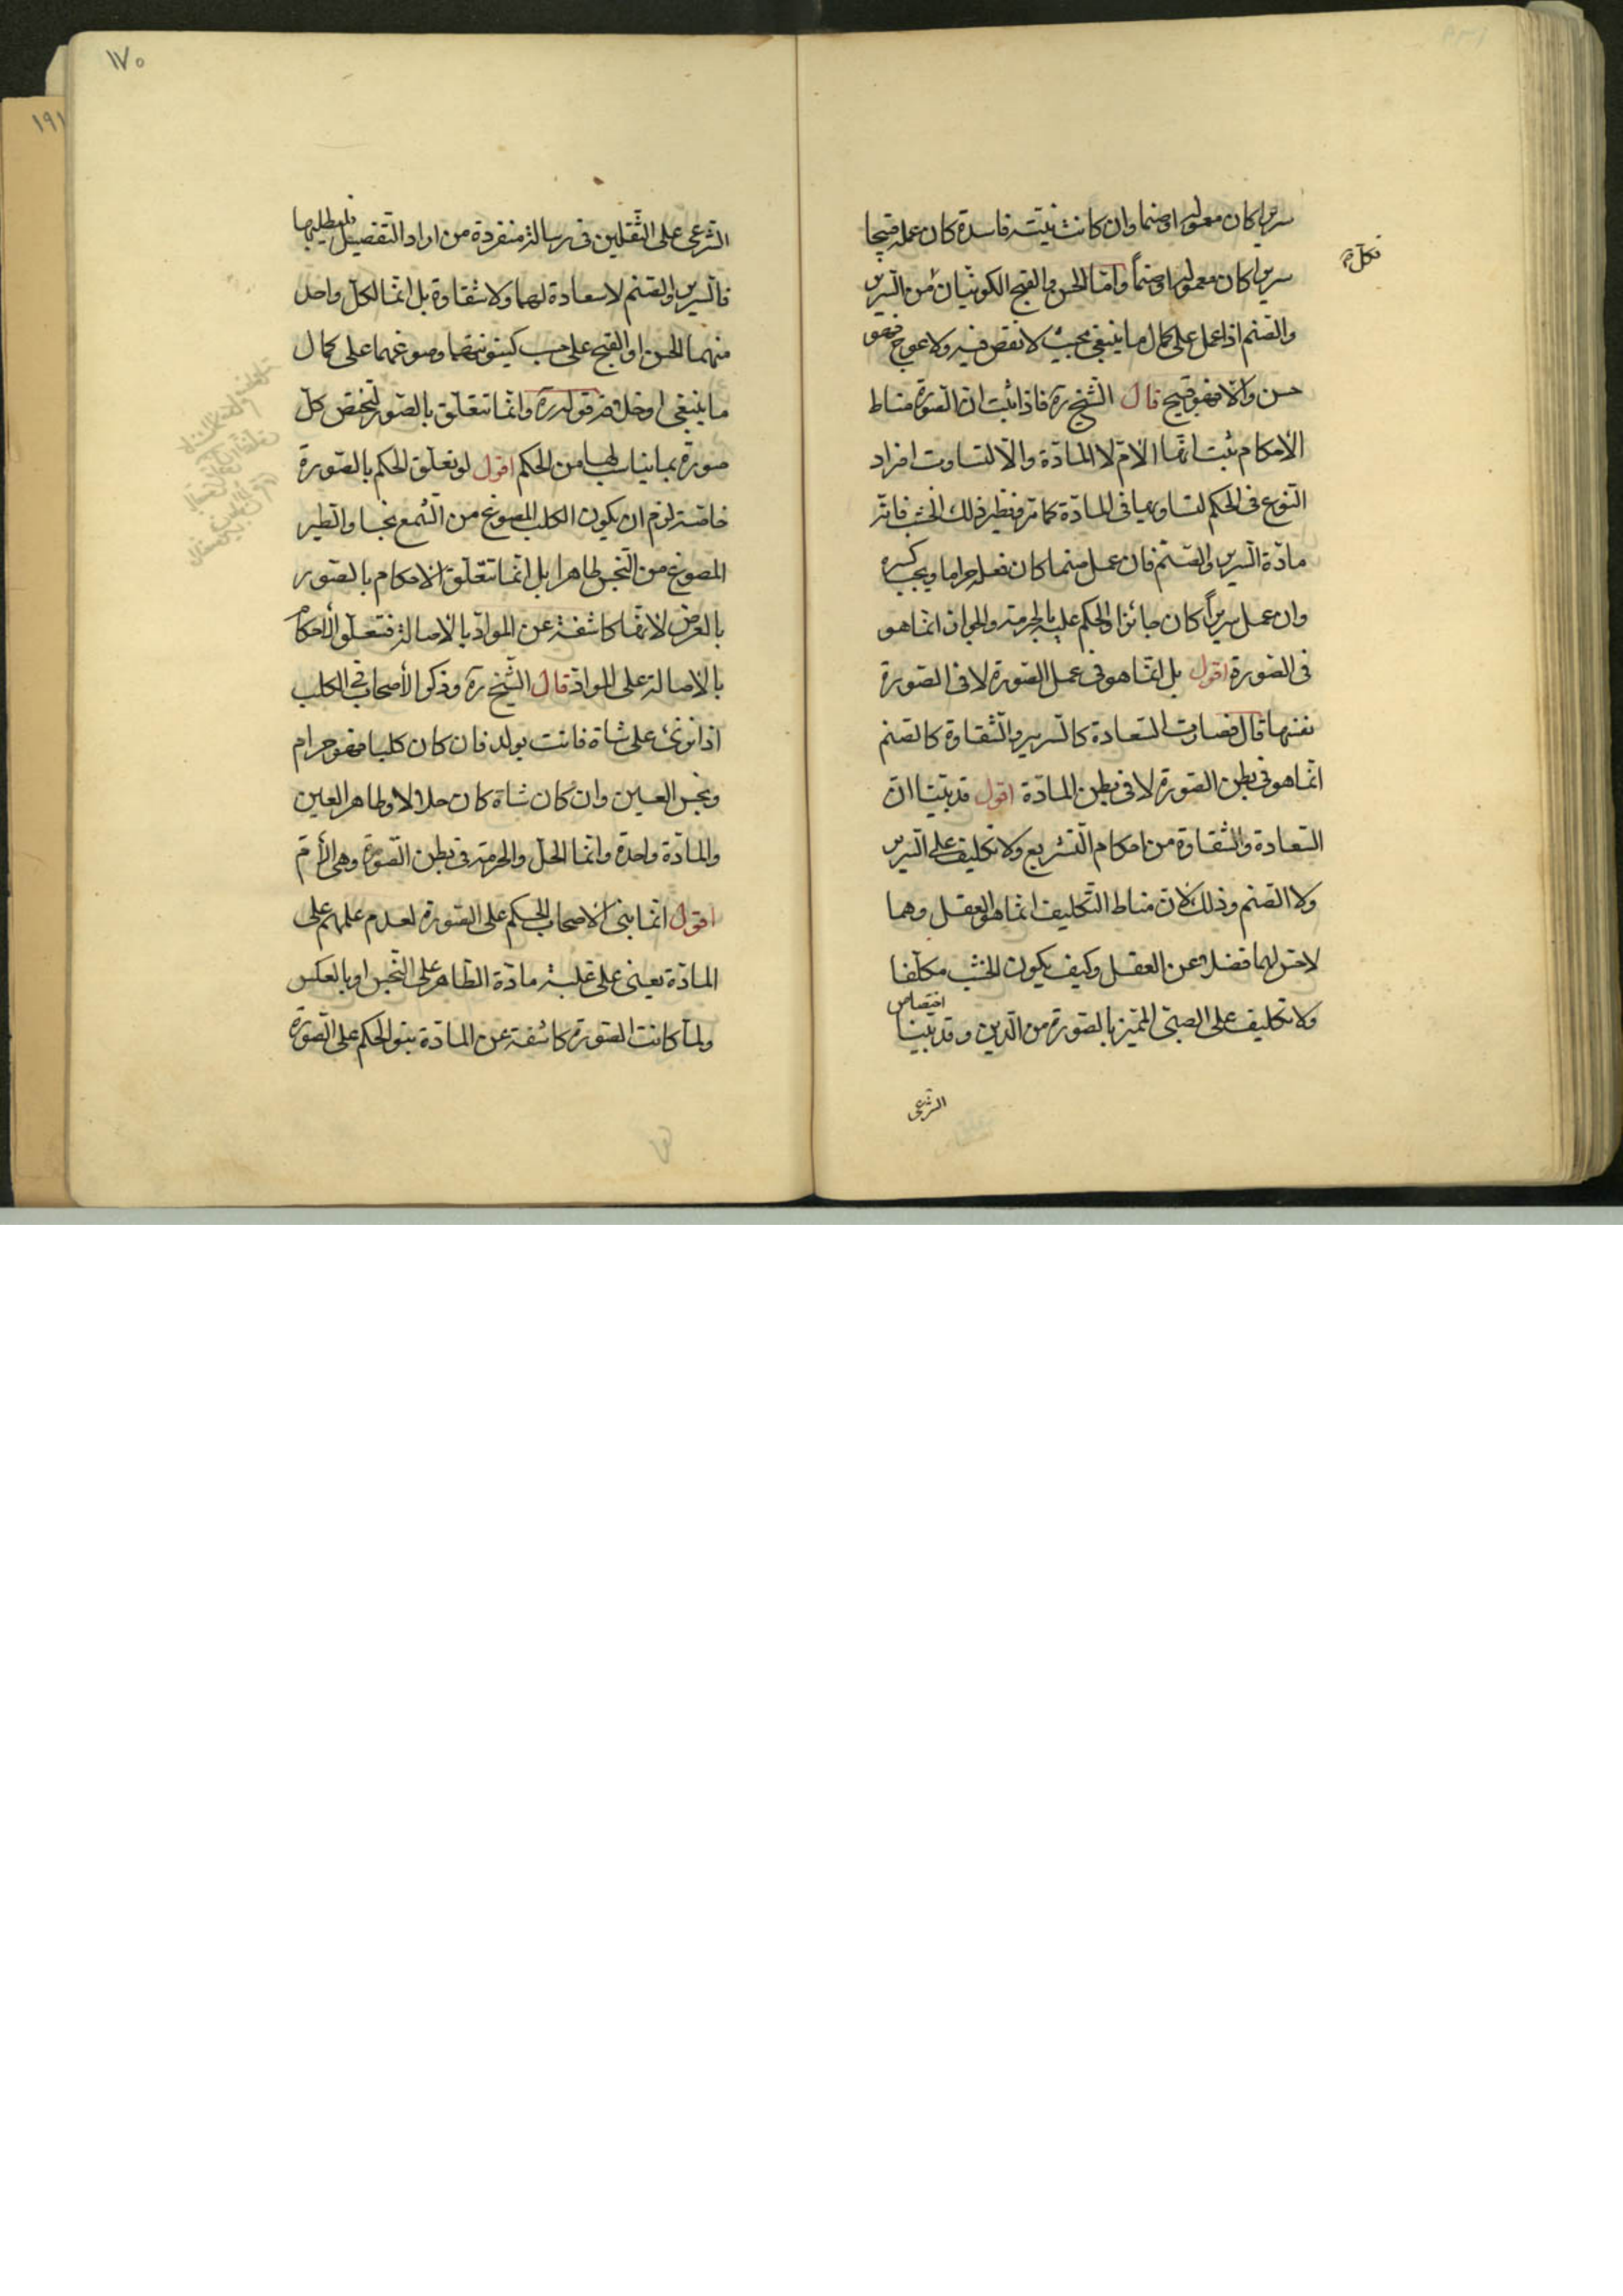 سريرا كان معموله او صنما وان كانت نيته فاسدة كان عمله قبيحا
سريرا كان معموله او صنماً وامّا الحسن والقبح الكونيّان فمن السّرير
فكلّ
والصّنم اذا عمل على كمال ما ينبغى بحيث لا نقص فيه ولا عوج فهو
حسن والّا فهو قبيح قال الشّيخ ره فاذا ثبت انّ الصّورة مناط
الأحكام ثبت انّها الأمّ لا المادّة والّا لتساوت افراد
النّوع فى الحكم لتساويها فى المادّة كما مرّ فنظير ذلك الخشب فانّه
مادّة السّرير والصّنم فان عمل صنما كان فعله حراما ويجب كسره
وان عمل سريراً كان جائزا والحكم عليه بالحرمة والجواز انّما هو
فى الصّورة اقول بل انّما هو فى عمل الصّورة لا فى الصّورة
نفسها قال فصارت السّعادة كالسّرير والشّقاوة كالصّنم
انّما هو فى بطن الصّورة لا فى بطن المادّة اقول قد بيّنا انّ
السّعادة والشّقاوة من احكام التّشريع ولا تكليف على السّرير
ولا الصّنم وذلك لانّ مناط التّكليف انّما هو العقل وهما
لا حسّ لهما فضلا عن العقل وكيف يكون الخشب مكلّفا
ولا تكليف على الصبىّ المميّز بالصّورة من الّدين وقد بيّنا اختصاص
الشّرعى
١٧٠
١٩١
الشّرعى على الثّقلين فى رسالة منفردة من اراد التّفصيل فليطلبها
فالسّرير والصّنم لا سعادة لهما ولا شقاوة بل انّما لكلّ واحد
منهما الحسن او القبح على حسب كينونتهما وصوغهما على كمال
ما ينبغى او خلافه قوله ره وانّما تتعلّق بالصّور لتختصّ كلّ
صورة بما يناسبها من الحكم اقول لو تعلّق الحكم بالصّورة
خاصّة لزم ان يكون الكلب المصوغ من الشّمع نجسا والطّير
المصوغ من النّجس طاهرا بل انّما تتعلّق الاحكام بالصّور
بالعرض لانّها كاشفة عن الموادّ بالاصالة فتتعلّق الأحكام
بالاصالة على الموادّ قال الشّيخ ره وذكر الأصحاب فى الكلب
اذا نزى على شاة فاتت بولد فان كان كلبا فهو حرام
ونجس العين وان كان شاة كان حلالا وطاهر العين
والمادّة واحدة وانّما الحلّ والحرمة فى بطن الصّورة وهى الأمّ
اقول انّما بنى الاصحاب الحكم على الصّورة لعدم علمهم على
المادّة يعنى على غلبة مادّة الطّاهر على النّجس او بالعكس
ولمّا كانت الصّورة كاشفة عن المادّة بنوا الحكم على الصّورة